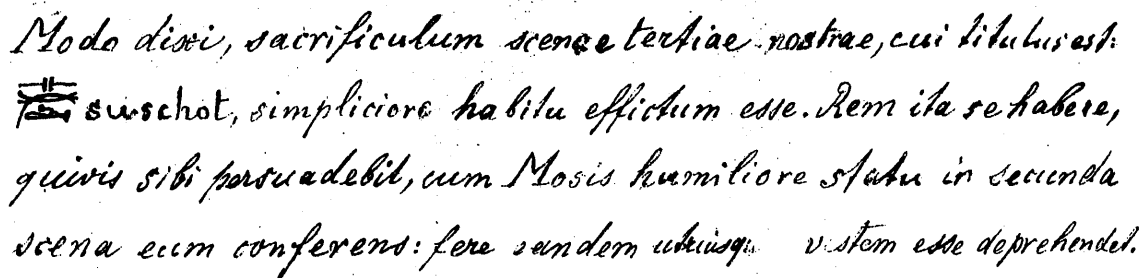 Modo dixi, sacrificulum scenae tertiae nostrae, cui titulus est:
suschot, simpliciore habitu effictum esse. Rem ita se habere,
quivis sibi persuadebit, cum Mosis humiliore statu in secunda
scena eum conferens: fere eandem utriusq vestem esse deprehendet.